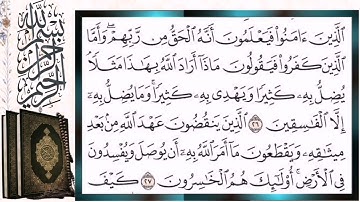 بسم الله الرحمن الرحيم
الَّذِينَ ءَامَنُوا۟ فَيَعْلَمُونَ أَنَّهُ الْحَقُّ مِن رَّبِّهِمْ ۖ وَأَمَّا
الَّذِينَ كَفَرُوا۟ فَيَقُولُونَ مَاذَآ أَرَادَ اللَّهُ بِهَٰذَا مَثَلًا ۘ
يُضِلُّ بِهِۦ كَثِيرًا وَيَهْدِى بِهِۦ كَثِيرًا ۚ وَمَا يُضِلُّ بِهِۦٓ
إِلَّا الْفَٰسِقِينَ ٢٦ الَّذِينَ يَنقُضُونَ عَهْدَ اللَّهِ مِنۢ بَعْدِ
مِيثَٰقِهِۦ وَيَقْطَعُونَ مَآ أَمَرَ اللَّهُ بِهِۦٓ أَن يُوصَلَ وَيُفْسِدُونَ
فِى الْأَرْضِ ۚ أُو۟لَٰٓئِكَ هُمُ الْخَٰسِرُونَ ٢٧ كَيْفَ